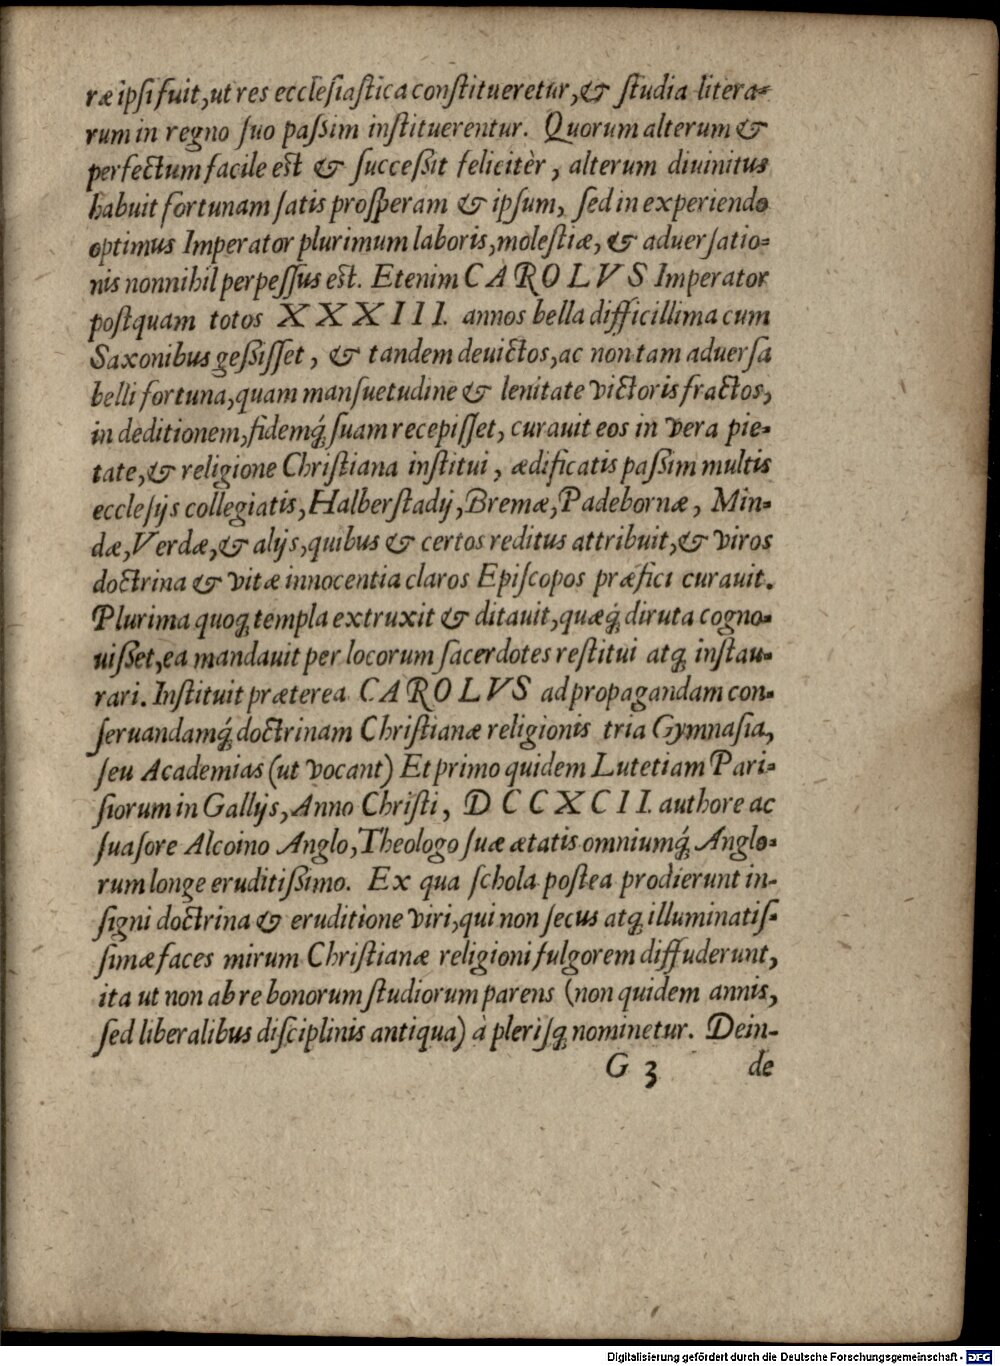 ræ ipsi fuit, ut res ecclesiastica constitueretur, & studia litera-
rum in regno suo paßim instituerentur. Quorum alterum &
perfectum facile est & succeßit felicitèr, alterum diuinitus
habuit fortunam satis prosperam & ipsum, sed in experiendo
optimus Imperator plurimum laboris, molestiæ, & aduersatio-
nis nonnihil perpessus est. Etenim CAROLVS Imperator
postquam totos XXXIII. annos bella difficillima cum
Saxonibus geßisset, & tandem deuictos, ac non tam aduersa
belli fortuna, quam mansuetudine & lenitate victoris fractos,
in deditionem, fidemq́; suam recepisset, curauit eos in vera pie-
tate, & religione Christiana institui, ædificatis paßim multis
ecclesijs collegiatis, Halberstadij, Bremæ, Padebornæ, Min-
dæ, Verdæ, & alijs, quibus & certos reditus attribuit, & viros
doctrina & vitæ innocentia claros Episcopos præfici curauit.
Plurima quoq; templa extruxit & ditauit, quæq́; diruta cogno-
uißet, ea mandauit per locorum sacerdotes restitui atq; instau-
rari. Instituit præterea CAROLVS ad propagandam con-
seruandamq́; doctrinam Christianæ religionis tria Gymnasia,
seu Academias (ut vocant) Et primo quidem Lutetiam Pari-
siorum in Gallijs, Anno Christi, DCCXCII. authore ac
suasore Alcoino Anglo, Theologo suæ ætatis omniumq́; Anglo-
rum longe eruditißimo. Ex qua schola postea prodierunt in-
signi doctrina & eruditione viri, qui non secus atq; illuminatis-
simæ faces mirum Christianæ religioni fulgorem diffuderunt,
ita ut non ab re bonorum studiorum parens (non quidem annis,
sed liberalibus disciplinis antiqua) à plerisq; nominetur. Dein-
G 3 de
Digitalisierung gefördert durch die Deutsche Forschungsgemeinschaft - DFG